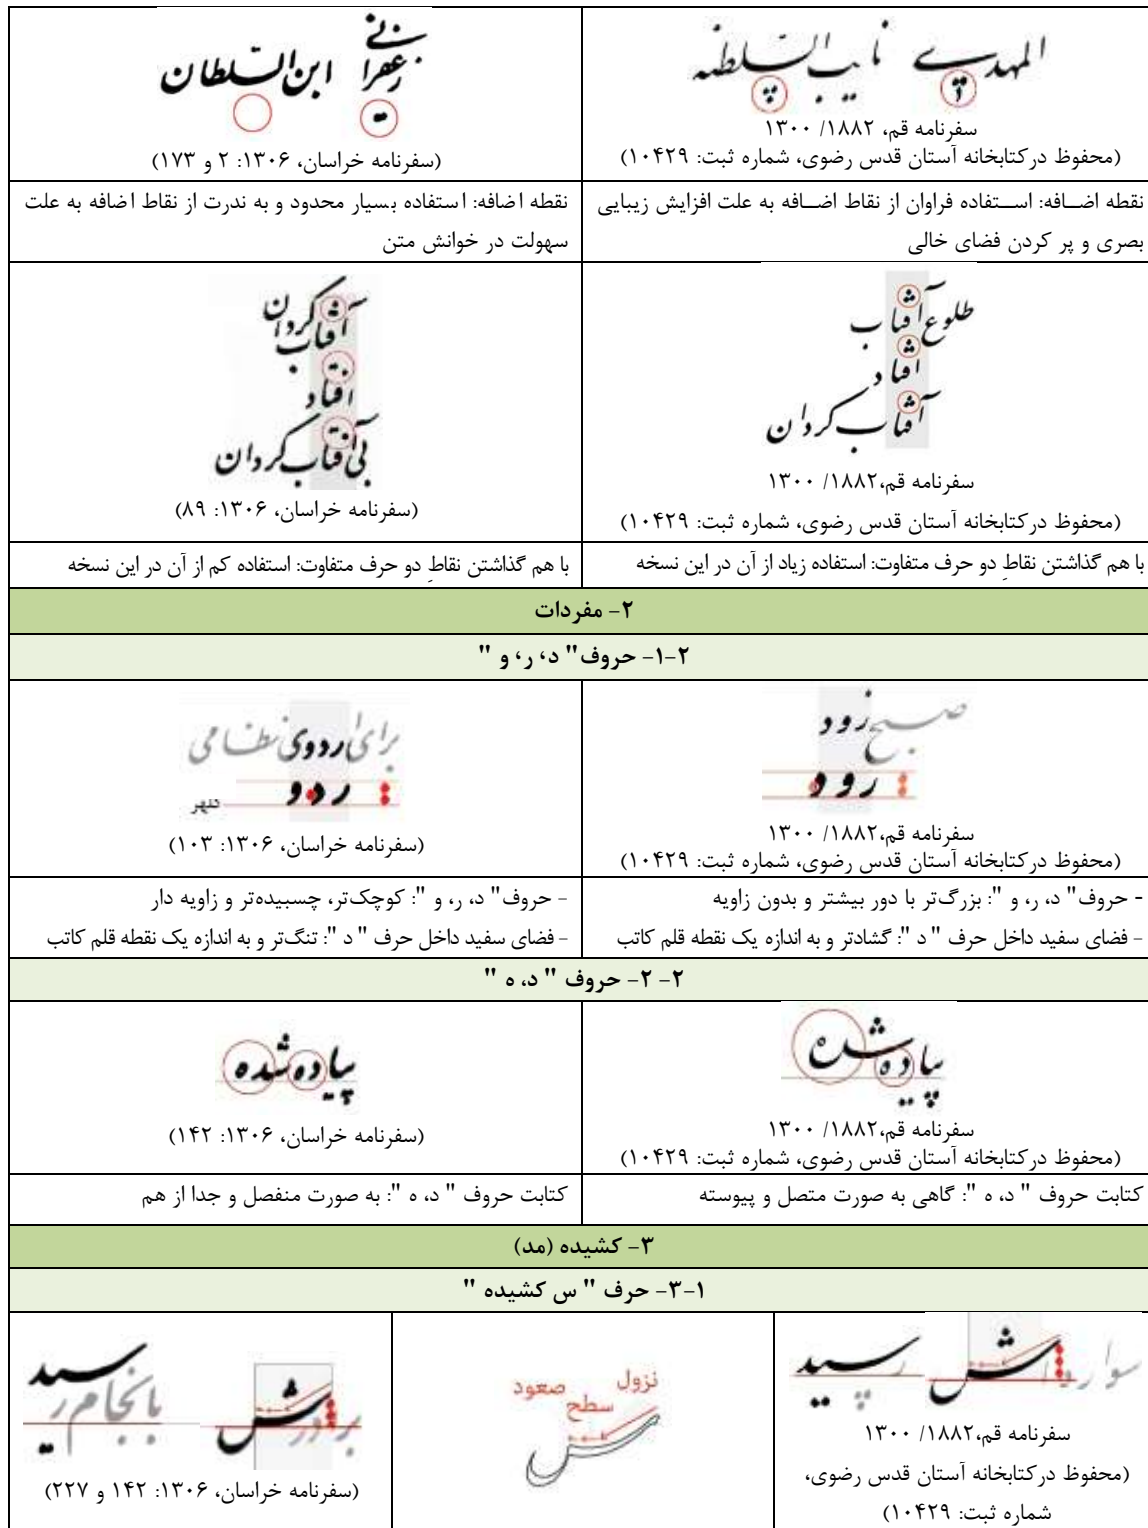 المهدی نایب السلطنه
سفرنامه قم، ۱۸۸۲/ ۱۳۰۰
(محفوظ درکتابخانه آستان قدس رضوی، شماره ثبت: ۱۰۴۲۹)
زعفرانی ابن السلطان
(سفرنامه خراسان، ۱۳۰۶: ۲ و ۱۷۳)
نقطه اضافه: استفاده فراوان از نقاط اضافه به علت افزایش زیبایی
بصری و پر کردن فضای خالی
نقطه اضافه: استفاده بسیار محدود و به ندرت از نقاط اضافه به علت
سهولت در خوانش متن
طلوع آفتاب
افتاد
آفتاب کردان
سفرنامه قم،۱۸۸۲/ ۱۳۰۰
(محفوظ درکتابخانه آستان قدس رضوی، شماره ثبت: ۱۰۴۲۹)
آفتاب کردان
افتاد
بی آفتاب کردان
(سفرنامه خراسان، ۱۳۰۶: ۸۹)
با هم گذاشتن نقاطِ دو حرف متفاوت: استفاده زیاد از آن در این نسخه
با هم گذاشتن نقاطِ دو حرف متفاوت: استفاده کم از آن در این نسخه
۲- مفردات
۲-۱- حروف" د، ر، و "
صبح زود
رود
سفرنامه قم،۱۸۸۲/ ۱۳۰۰
(محفوظ درکتابخانه آستان قدس رضوی، شماره ثبت: ۱۰۴۲۹)
برای اردوی نظامی
ردو
(سفرنامه خراسان، ۱۳۰۶: ۱۰۳)
- حروف" د، ر، و ": بزرگ‌تر با دور بیشتر و بدون زاویه
- فضای سفید داخل حرف " د ": گشادتر و به اندازه یک نقطه قلم کاتب
- حروف" د، ر، و ": کوچک‌تر، چسبیده‌تر و زاویه دار
- فضای سفید داخل حرف " د ": تنگ‌تر و به اندازه یک نقطه قلم کاتب
۲- ۲- حروف " د، ه "
پیاده شده
سفرنامه قم،۱۸۸۲/ ۱۳۰۰
(محفوظ درکتابخانه آستان قدس رضوی، شماره ثبت: ۱۰۴۲۹)
پیاده شده
(سفرنامه خراسان، ۱۳۰۶: ۱۴۲)
کتابت حروف " د، ه ": گاهی به صورت متصل و پیوسته
کتابت حروف " د، ه ": به صورت منفصل و جدا از هم
۳- کشیده (مد)
۳-۱- حرف " س کشیده "
رسید
سفرنامه قم،۱۸۸۲/ ۱۳۰۰
(محفوظ درکتابخانه آستان قدس رضوی،
شماره ثبت: ۱۰۴۲۹)
نزول
سطح
صعود
بانجام رسید
(سفرنامه خراسان، ۱۳۰۶: ۱۴۲ و ۲۲۷)